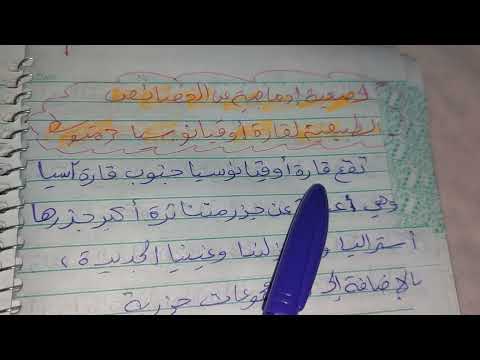 وضعية إدماجية عن الخصائص
الطبيعية لقارة أوقيانوسيا
تقع قارة أوقيانوسيا جنوب قارة آسيا
وهي عن جزر متناثرة أكبر جزرها
أستراليا و وغينيا الجديدة ،
بالإضافة إلى جزرية